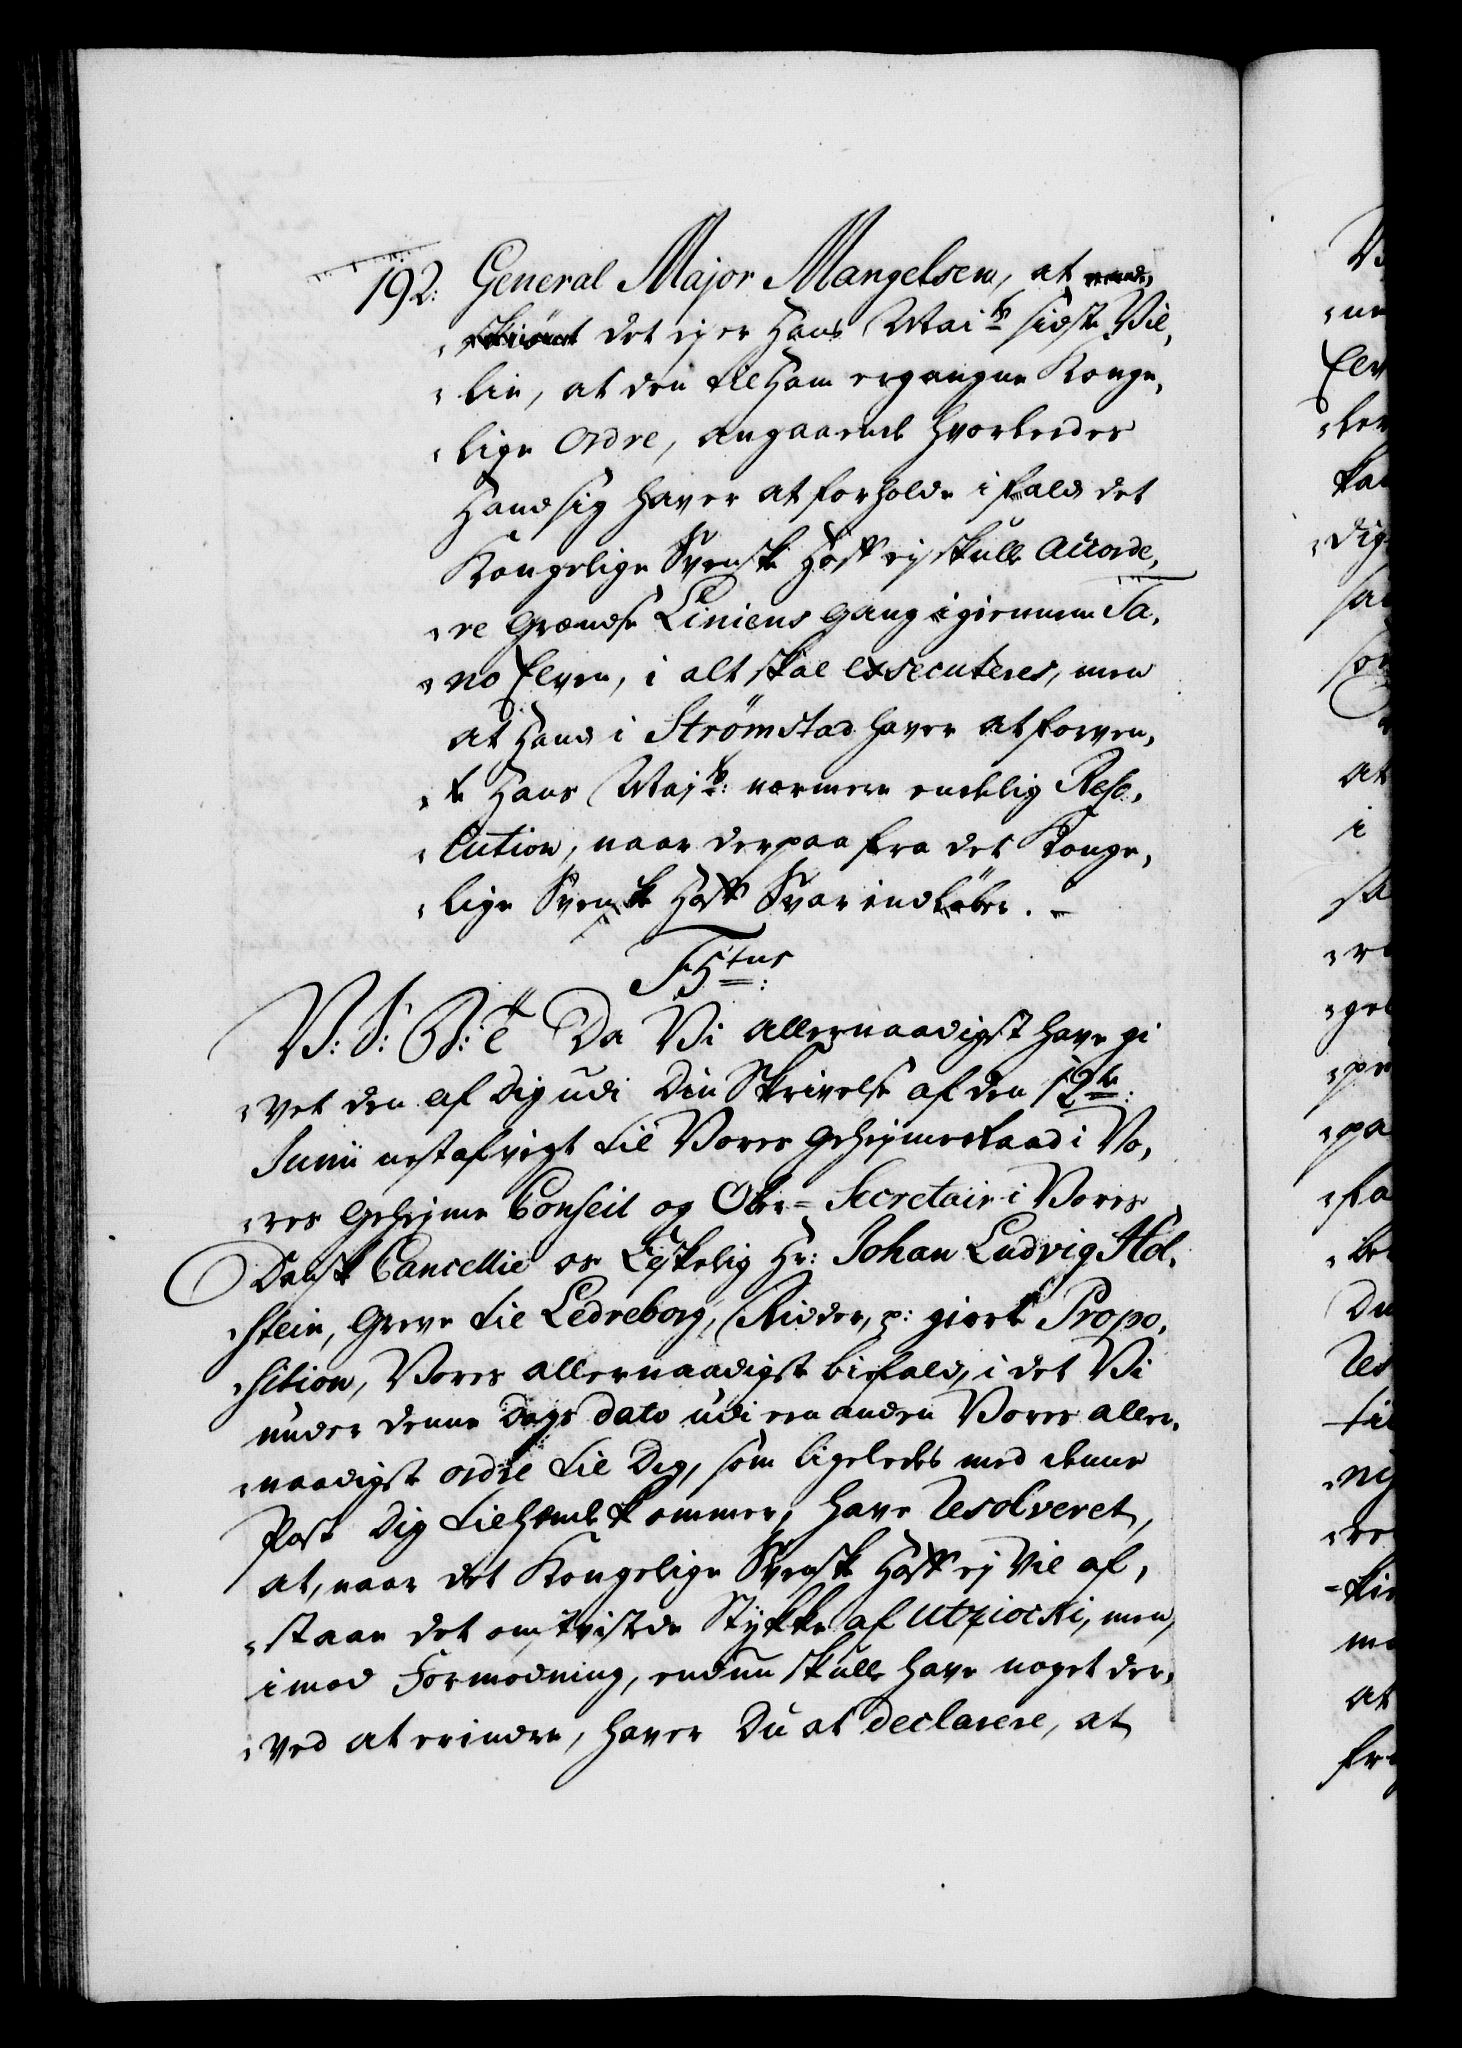 192. General Major Mangelsen, at
det ej er Hans Maj:ts sidste Vil,
„lie, at den til Ham ergangne Konge,
„lige Ordre, angaaende hvorledes
Hand sig haver at forholde ifald det
Kongelige Svenske Hoff ej skulle accorde,
„re Grændse Liniens gang igiennem Ta,
„no Elven, i alt skal executeres, men
at Hand i Strømstad haver at forven,
„te Hans Maj:ts nærmere endelig Reso,
„lution, naar derpaa fra det Konge,
„lige Svenske Hoff Svar indløber. –

V: S: G: T: Da Vi allernaadigst have gi
„vet den af Dig udi Din Skrivelse af den 12te:
Junii nestafvigt til Vores Geheimeraad i Vo,
„res Geheime Conseil og Ober-Secretair i Vores
Danske Cancellie os Elskelig Hr: Johan Ludvig Hol,
„stein, Greve til Ledreborg, Ridder, p: giorte Propo,
„sition, Vores allernaadigste bifald, i det Vi
under denne Dags dato udi een anden Vores aller,
„naadigste ordre til Dig, som ligeledes med denne
Post Dig tilhænde kommer, have resolveret,
at, naar det Kongelige Svenske Hoff ej vil af,
„staae det omtvistede Stykke af Utziocki, men,
imod Formodning, endnu skulle have noget der,
„ved at erindre, haver Du at declarere, at